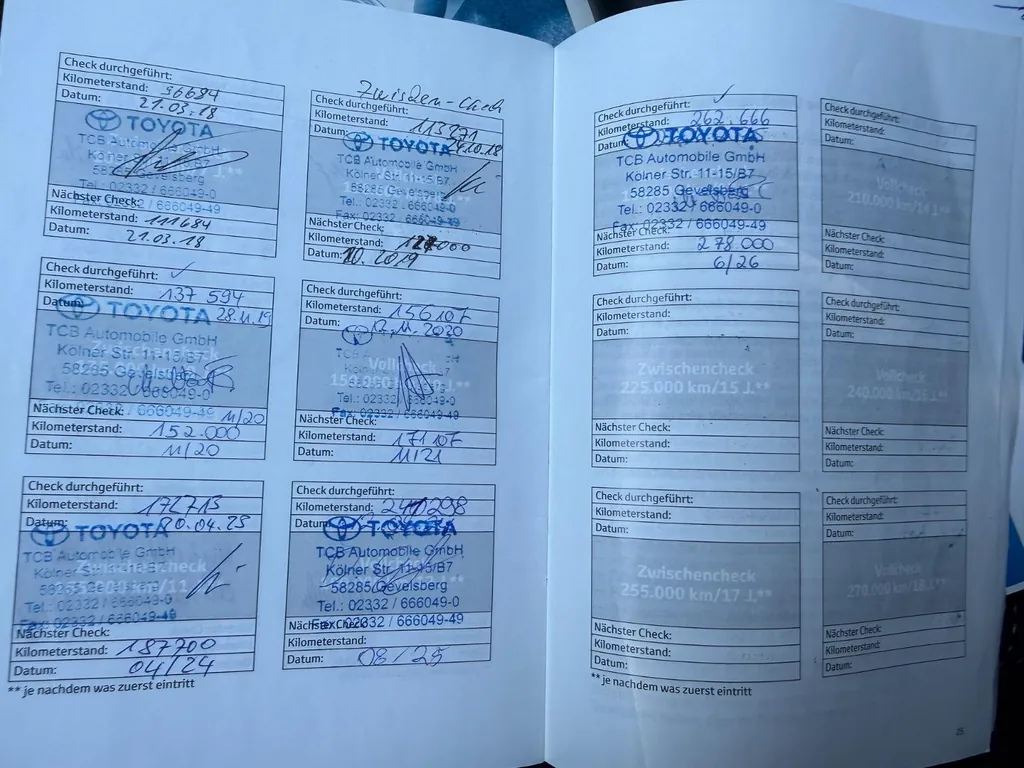 Check durchgeführt:
Kilometerstand: 96694
Datum: 21.03.18
TOYOTA
TCB Automobile GmbH
Kölner Str. 11-15/B7
58285 Gevelsberg
Tel.: 02332 / 666049-0
Fax: 02332 / 666049-49
Nächster Check:
Kilometerstand: 111684
Datum: 21.03.18
Zwischen-Check
Check durchgeführt:
Kilometerstand: 113271
Datum: 24.10.18
TOYOTA
TCB Automobile GmbH
Kölner Str. 11-15/B7
58285 Gevelsberg
Tel.: 02332 / 666049-0
Fax: 02332 / 666049-49
Nächster Check:
Kilometerstand:
Datum: 10.2019
Check durchgeführt: ✓
Kilometerstand: 137 594
Datum: 28.11.19
TOYOTA
TCB Automobile GmbH
Kölner Str. 11-15/B7
58285 Gevelsberg
Tel.: 02332 / 666049-0
/ 666049-49
Nächster Check: 11/20
Kilometerstand: 152.000
Datum: 11/20
Check durchgeführt:
Kilometerstand: 156107
Datum: 12.11.2020
Vollcheck
TCB
Tel.: 02332 / 666049-0
Fax: 02332 / 666049-49
Nächster Check:
Kilometerstand: 171107
Datum: 11/21
Check durchgeführt:
Kilometerstand: 172713
Datum: 20.04.23
TOYOTA
TCB Automobile GmbH
Zwischencheck
58285
Tel.: 02332 / 666049-0
Fax: 02332 / 666049-49
Nächster Check:
Kilometerstand: 187700
Datum: 04/24
Check durchgeführt:
Kilometerstand:
Datum:
TOYOTA
TCB Automobile GmbH
Kölner Str. 11-15/B7
58285 Gevelsberg
Tel.: 02332 / 666049-0
Fax: 02332 / 666049-49
Nächster Check:
Kilometerstand:
Datum: 08/25
** je nachdem was zuerst eintritt
Check durchgeführt: ✓
Kilometerstand: 262.666
Datum:
TOYOTA
TCB Automobile GmbH
Kölner Str. 11-15/B7
58285 Gevelsberg
Tel.: 02332 / 666049-0
Fax: 02332 / 666049-49
Nächster Check:
Kilometerstand: 278000
Datum: 6/26
Check durchgeführt:
Kilometerstand:
Datum:
Vollcheck
210.000 km/14 J.**
Nächster Check:
Kilometerstand:
Datum:
Check durchgeführt:
Kilometerstand:
Datum:
Zwischencheck
225.000 km/15 J.**
Nächster Check:
Kilometerstand:
Datum:
Check durchgeführt:
Kilometerstand:
Datum:
Vollcheck
240.000 km/16 J.**
Nächster Check:
Kilometerstand:
Datum:
Check durchgeführt:
Kilometerstand:
Datum:
Zwischencheck
255.000 km/17 J.**
Nächster Check:
Kilometerstand:
Datum:
Check durchgeführt:
Kilometerstand:
Datum:
Vollcheck
270.000 km/18 J.**
Nächster Check:
Kilometerstand:
Datum:
** je nachdem was zuerst eintritt